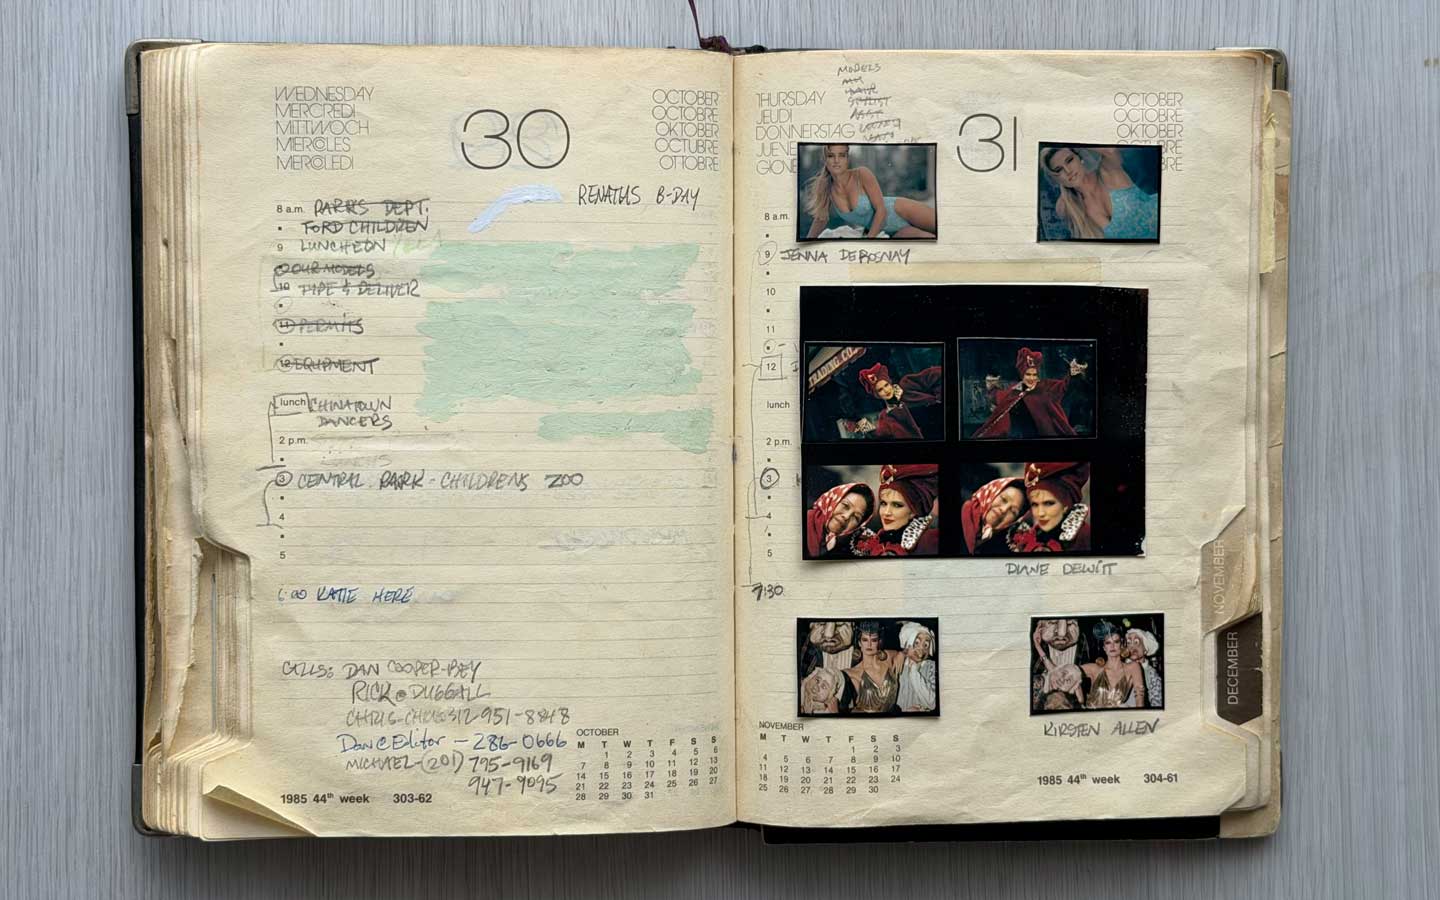 WEDNESDAY
MERCREDI
MITTWOCH
MIERCOLES
MERCOLEDI
30
OCTOBER
OCTOBRE
OKTOBER
OCTUBRE
OTTOBRE
RENATUS B-DAY
8 a.m. PARKS DEPT.
FORD CHILDREN
9 LUNCHEON
OUR MODELS
10 TYPE & DELIVER
11 PERMITS
12 EQUIPMENT
lunch CHINATOWN
DANCERS
2 p.m.
3 CENTRAL PARK - CHILDRENS ZOO
4
5
6:00 KATIE HERE
CALLS: DAN COOPER-BEY
RICK @ DUGGALL
CHRIS- 312-951-8848
Dan @ Editor - 286-0666
MICHAEL-(201) 795-9169
947-9095
OCTOBER
M T W T F S S
1 2 3 4 5 6
7 8 9 10 11 12 13
14 15 16 17 18 19 20
21 22 23 24 25 26 27
28 29 30 31
1985 44th week 303-62
MODELS
HAIR
STYLIST
THURSDAY
JEUDI
DONNERSTAG
JUEVE
GIOVE
31
OCTOBER
OCTOBRE
OKTOBER
OCTUBRE
OTTOBRE
8 a.m.
9 JENNA DEROSNAY
10
11
12
TRADING CO.
lunch
2 p.m.
3
4
5
DIANE DEWITT
7:30
KIRSTEN ALLEN
NOVEMBER
M T W T F S S
1 2 3
4 5 6 7 8 9 10
11 12 13 14 15 16 17
18 19 20 21 22 23 24
25 26 27 28 29 30
1985 44th week 304-61
NOVEMBER
DECEMBER